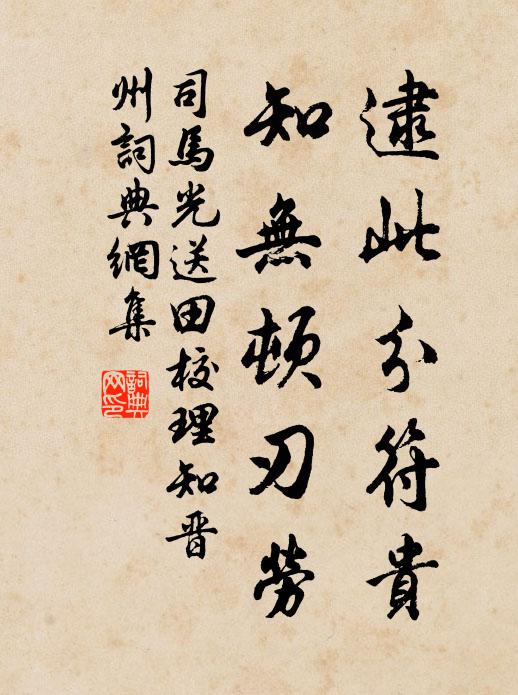 逮此分符貴
知無頓刃勞
司馬光送田校理知晋
州詞典網集
詞典
网印